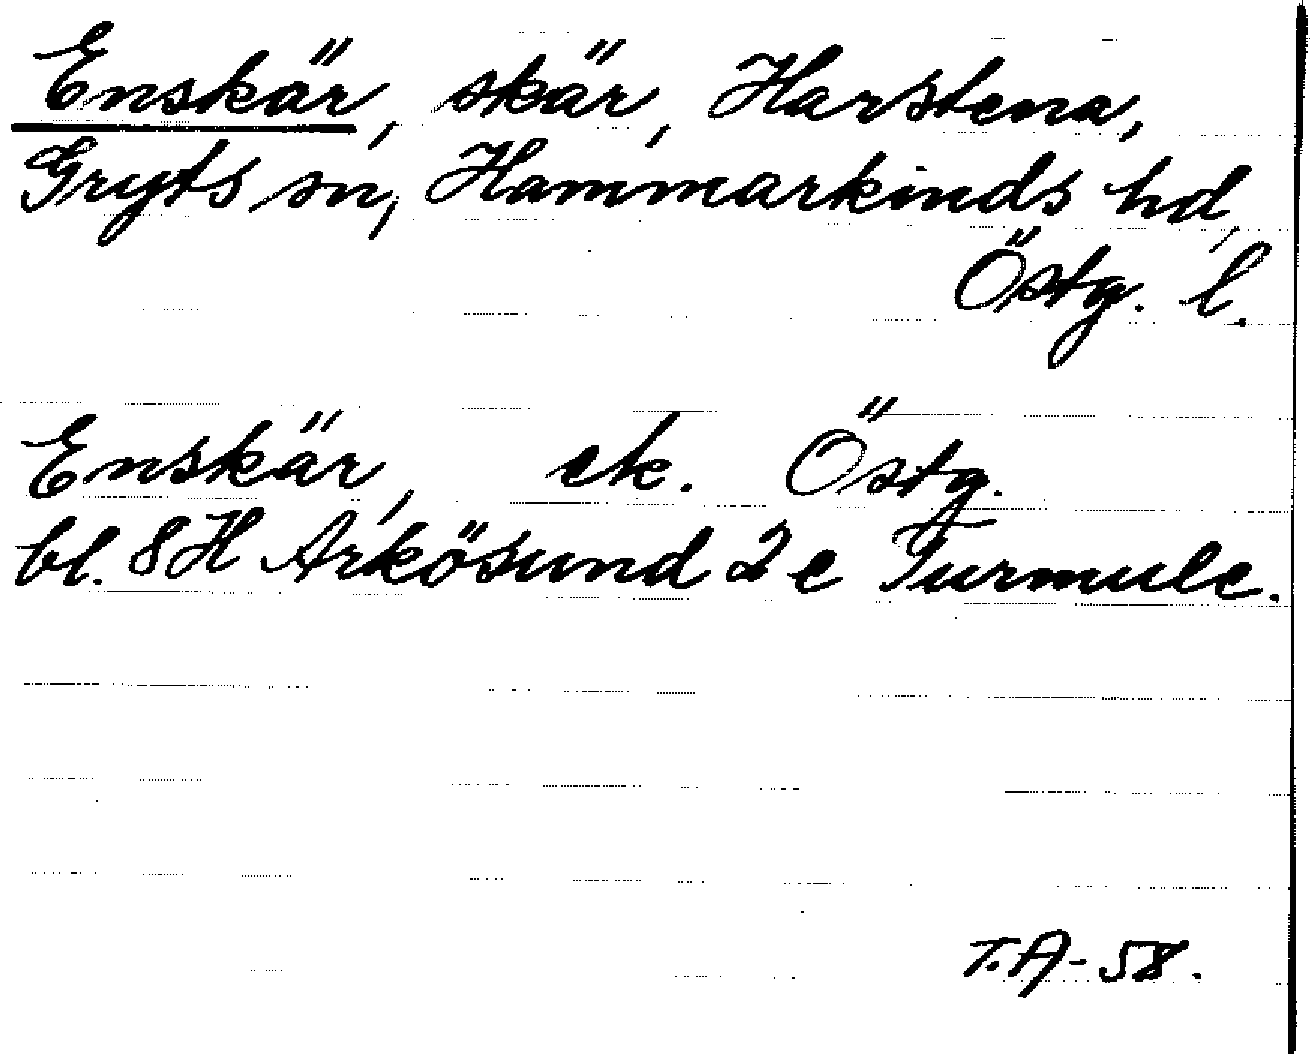 Enskär, skär, Harstena,
Gryts sn, Hammarkinds hd,
Östg. l.
Enskär, ek. Östg.
bl. 8H Arkösund 2 e Turmule.
T.A-58.